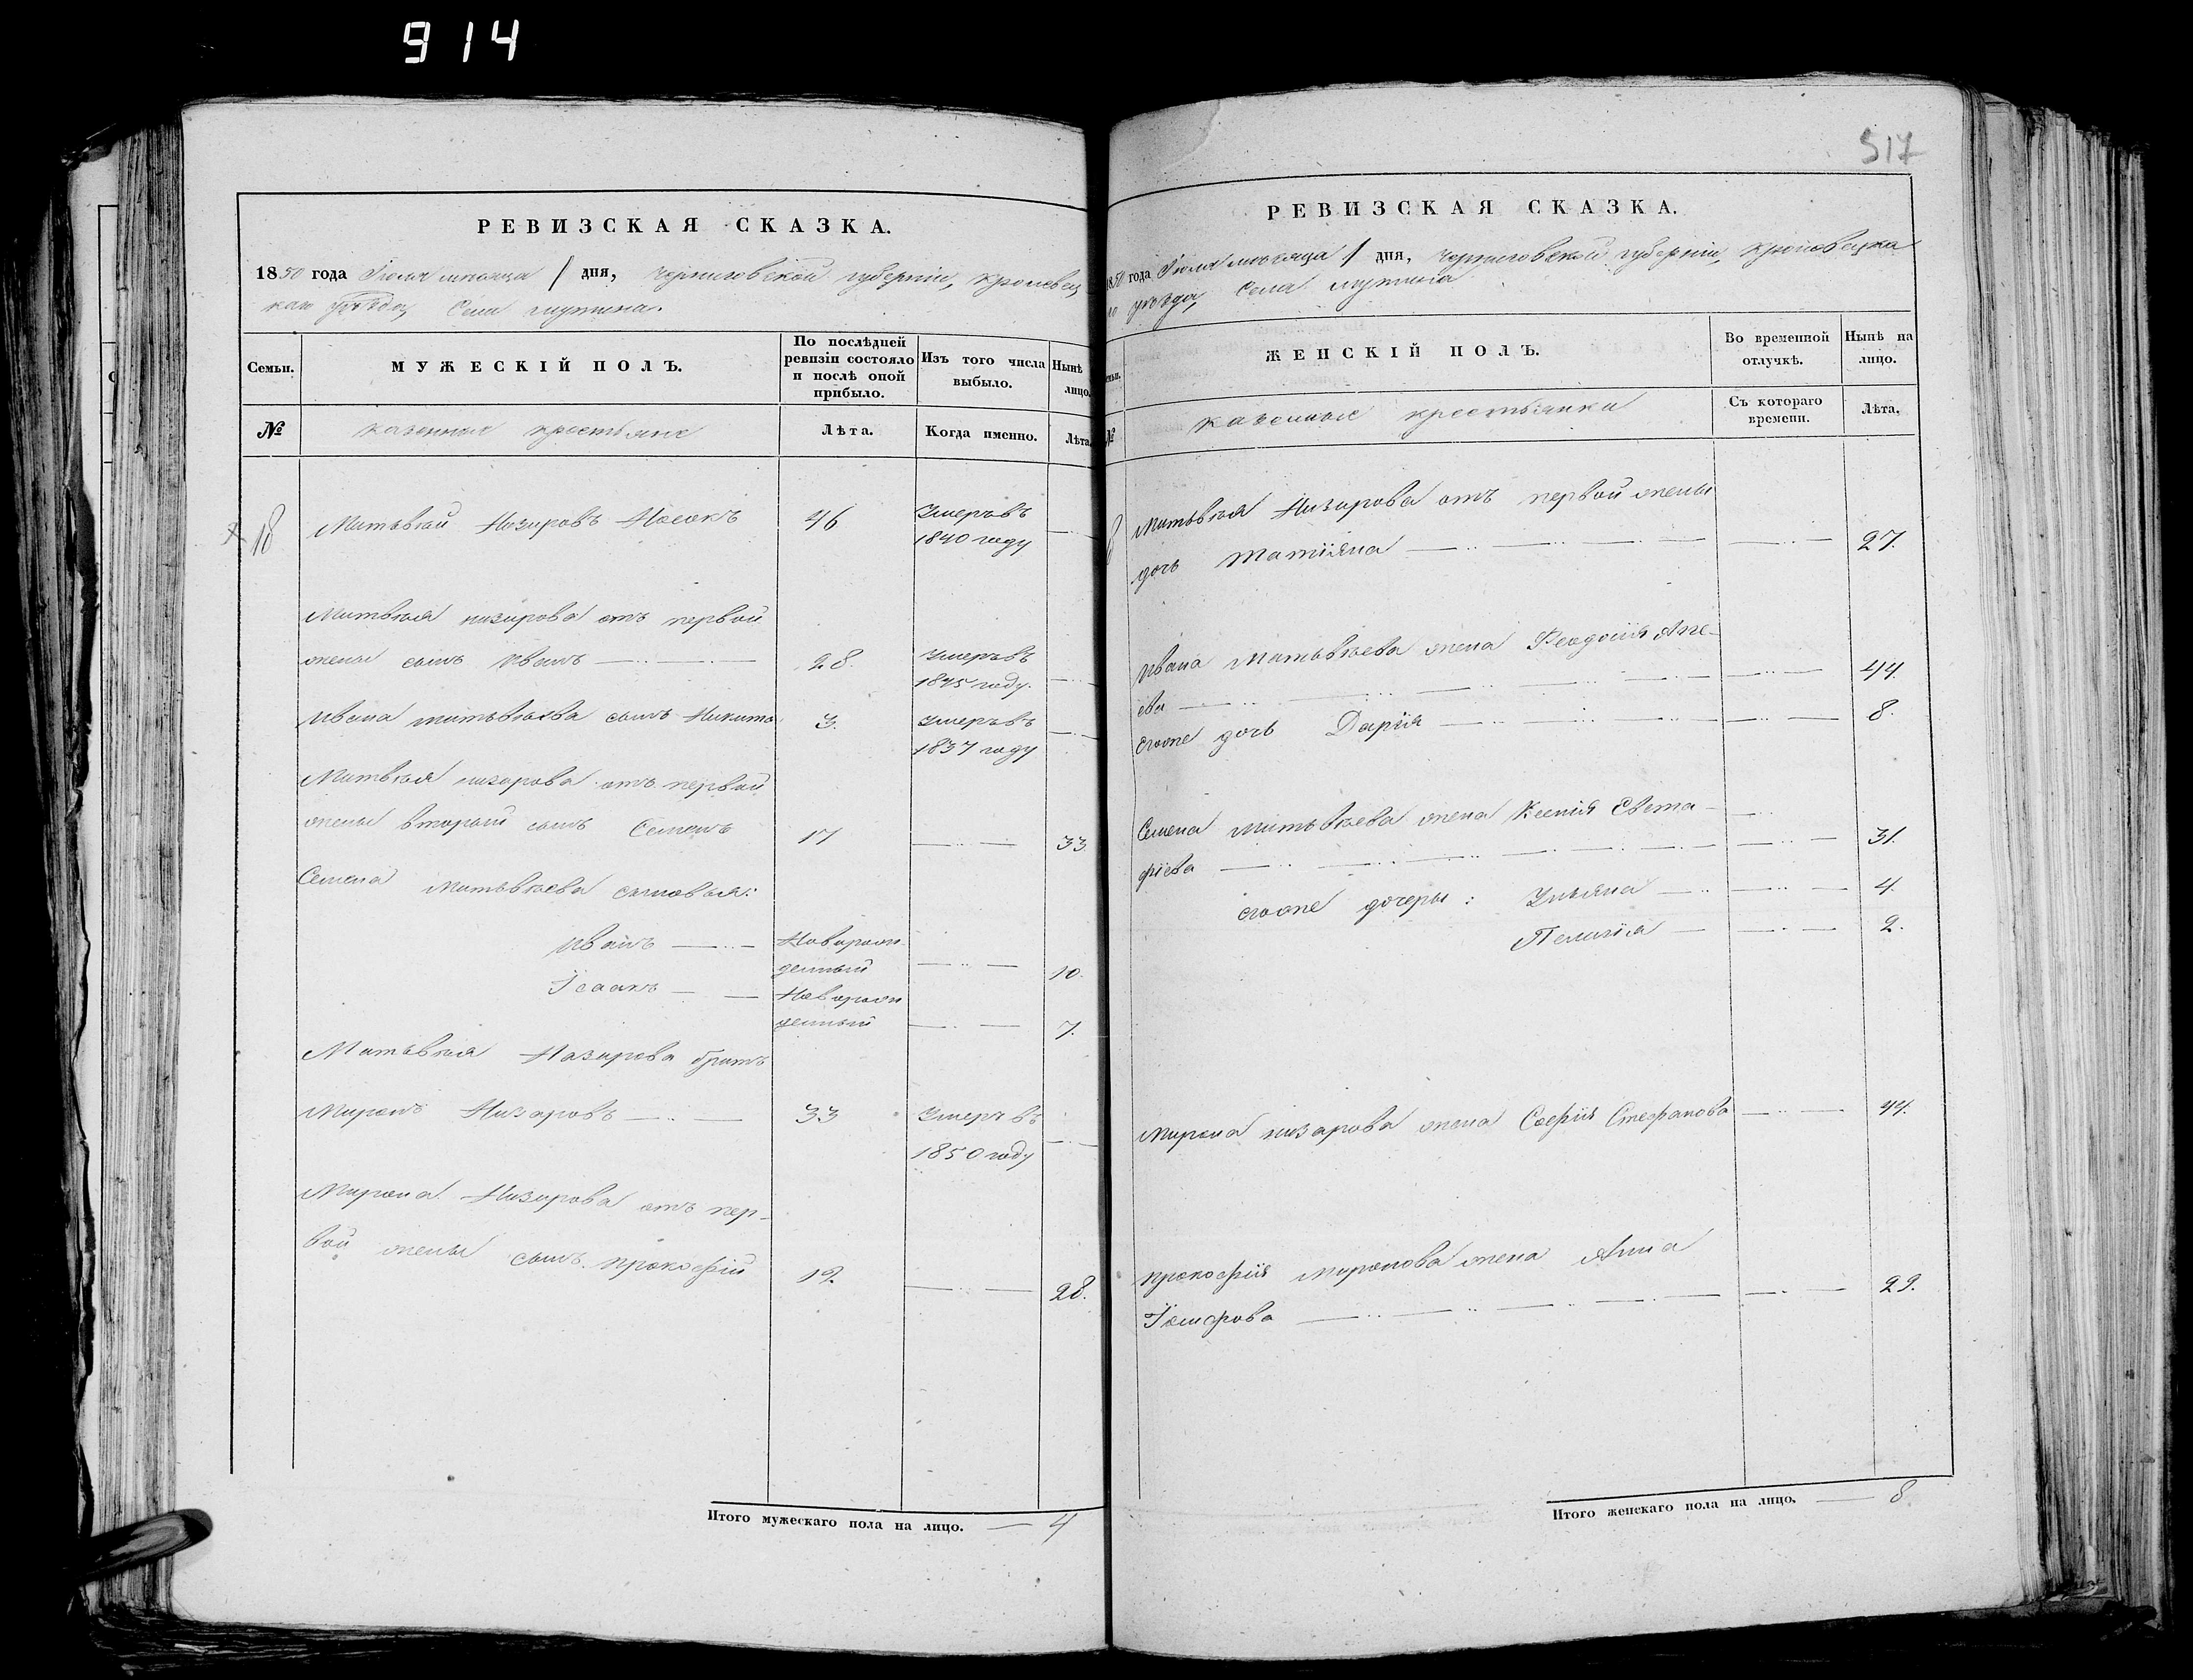 914
РЕВИЗСКАЯ СКАЗКА.
1850 года Іюля мѣсяца 1 дня, Черниговской губерніи, Кролевец
каго уѣзда, Села Мутина.
Семьи.
МУЖЕСКІЙ ПОЛЪ.
По послѣдней ревизіи состояло и послѣ оной прибыло.
Изъ того числа выбыло.
Нынѣ лицо.
№
казенные крестьяне
Лѣта.
Когда именно.
Лѣта
18 Матвѣй Назаровъ Носокъ 46 Умеръ въ
1840 году
Матвѣя Назарова отъ первой
жены сынъ Иванъ 28. Умеръ въ
1845 году.
Ивана Матвѣева сынъ Никита 3. Умеръ въ
1837 году
Матвѣя Назарова отъ первой
жены вторый сынъ Семенъ 17 33.
Семена Матвѣева сыновья:
Иванъ Новорож
денный 10.
Ісаакъ Новорож
денный 7.
Матвѣя Назарова братъ
Миронъ Назаровъ 33 Умеръ въ
1850 году
Мирона Назарова отъ пер-
вой жены сынъ Прокофій 12. 28.
Итого мужескаго пола на лицо. 4
517
РЕВИЗСКАЯ СКАЗКА.
1850 года Іюля мѣсяца 1 дня, Черниговской губерніи, Кролевецка
го уѣзда, Села Мутина
ЖЕНСКІЙ ПОЛЪ.
Во временной отлучкѣ.
Нынѣ на лицо.
№
казенные крестьянки
Съ котораго времени.
Лѣта.
Матвѣя Назарова отъ первой жены
дочь Татіяна 27.
Ивана Матвѣева жена Феодосія
ева 44.
егоже дочь Дарія 8.
Семена Матвѣева жена Ксенія Евста
фіева 31.
егоже дочеры: Ульяна 4.
Пелагія 2.
Мирона Назарова жена Софія Стефанова 44.
Прокофія Миронова жена Анна
29.
Итого женскаго пола на лицо. 8.